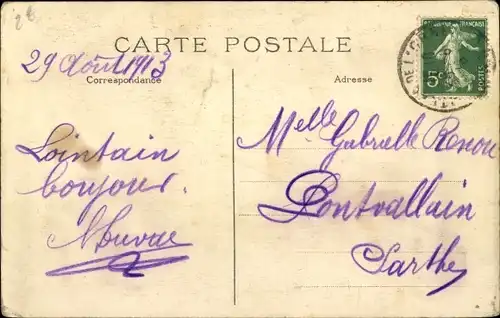 CARTE POSTALE
29 Août 1913
Correspondance
Adresse
RÉPUBLIQUE FRANÇAISE
5c
POSTES
Lointain
bonjour.
Melle Gabrielle Renou
Pontvallain
Sarthe